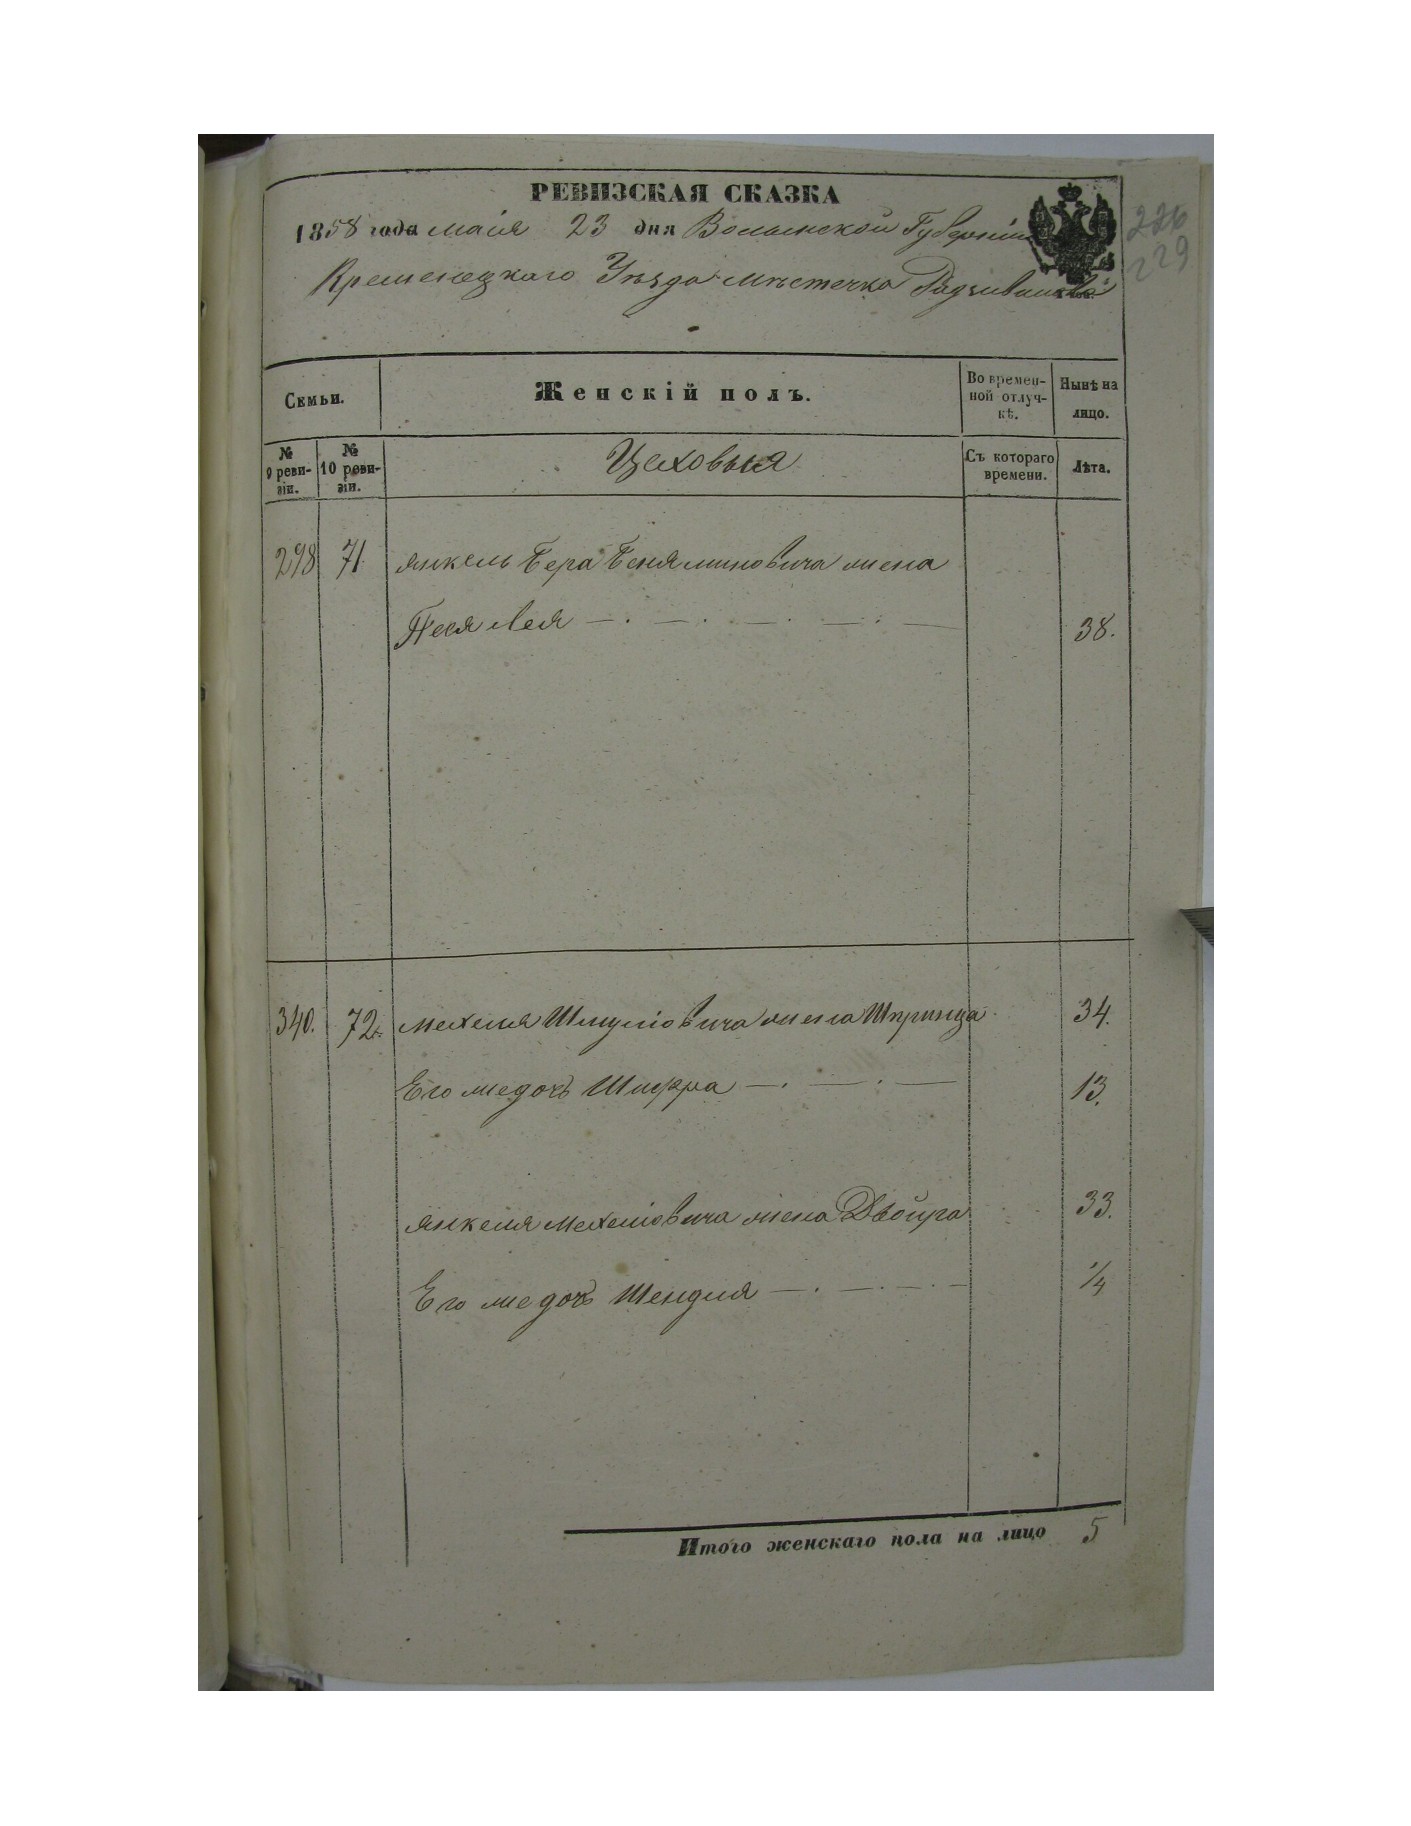 РЕВИЗСКАЯ СКАЗКА
1858 года маія 23 дня Волынской Губерніи
226
229
Кременецкаго Уѣзда мѣстечка Радзивилова
Семьи.
Женскій полъ.
Во времен-
ной отлуч-
кѣ.
Нынѣ на
лицо.
№
9 реви-
зіи.
№
10 реви-
зіи.
Цеховыя
Съ котораго
времени.
Лѣта.
298 71 Янкель Бера Беняминовича жена
Песя Лея 38.
340. 72. Мехеля Шмулiовича жена Шпринца 34.
Его же дочь Шифра 13.
Янкеля Мехелiовича жена Двойра 33.
Его же дочь Шендля 1/4
Итого женскаго пола на лицо 5